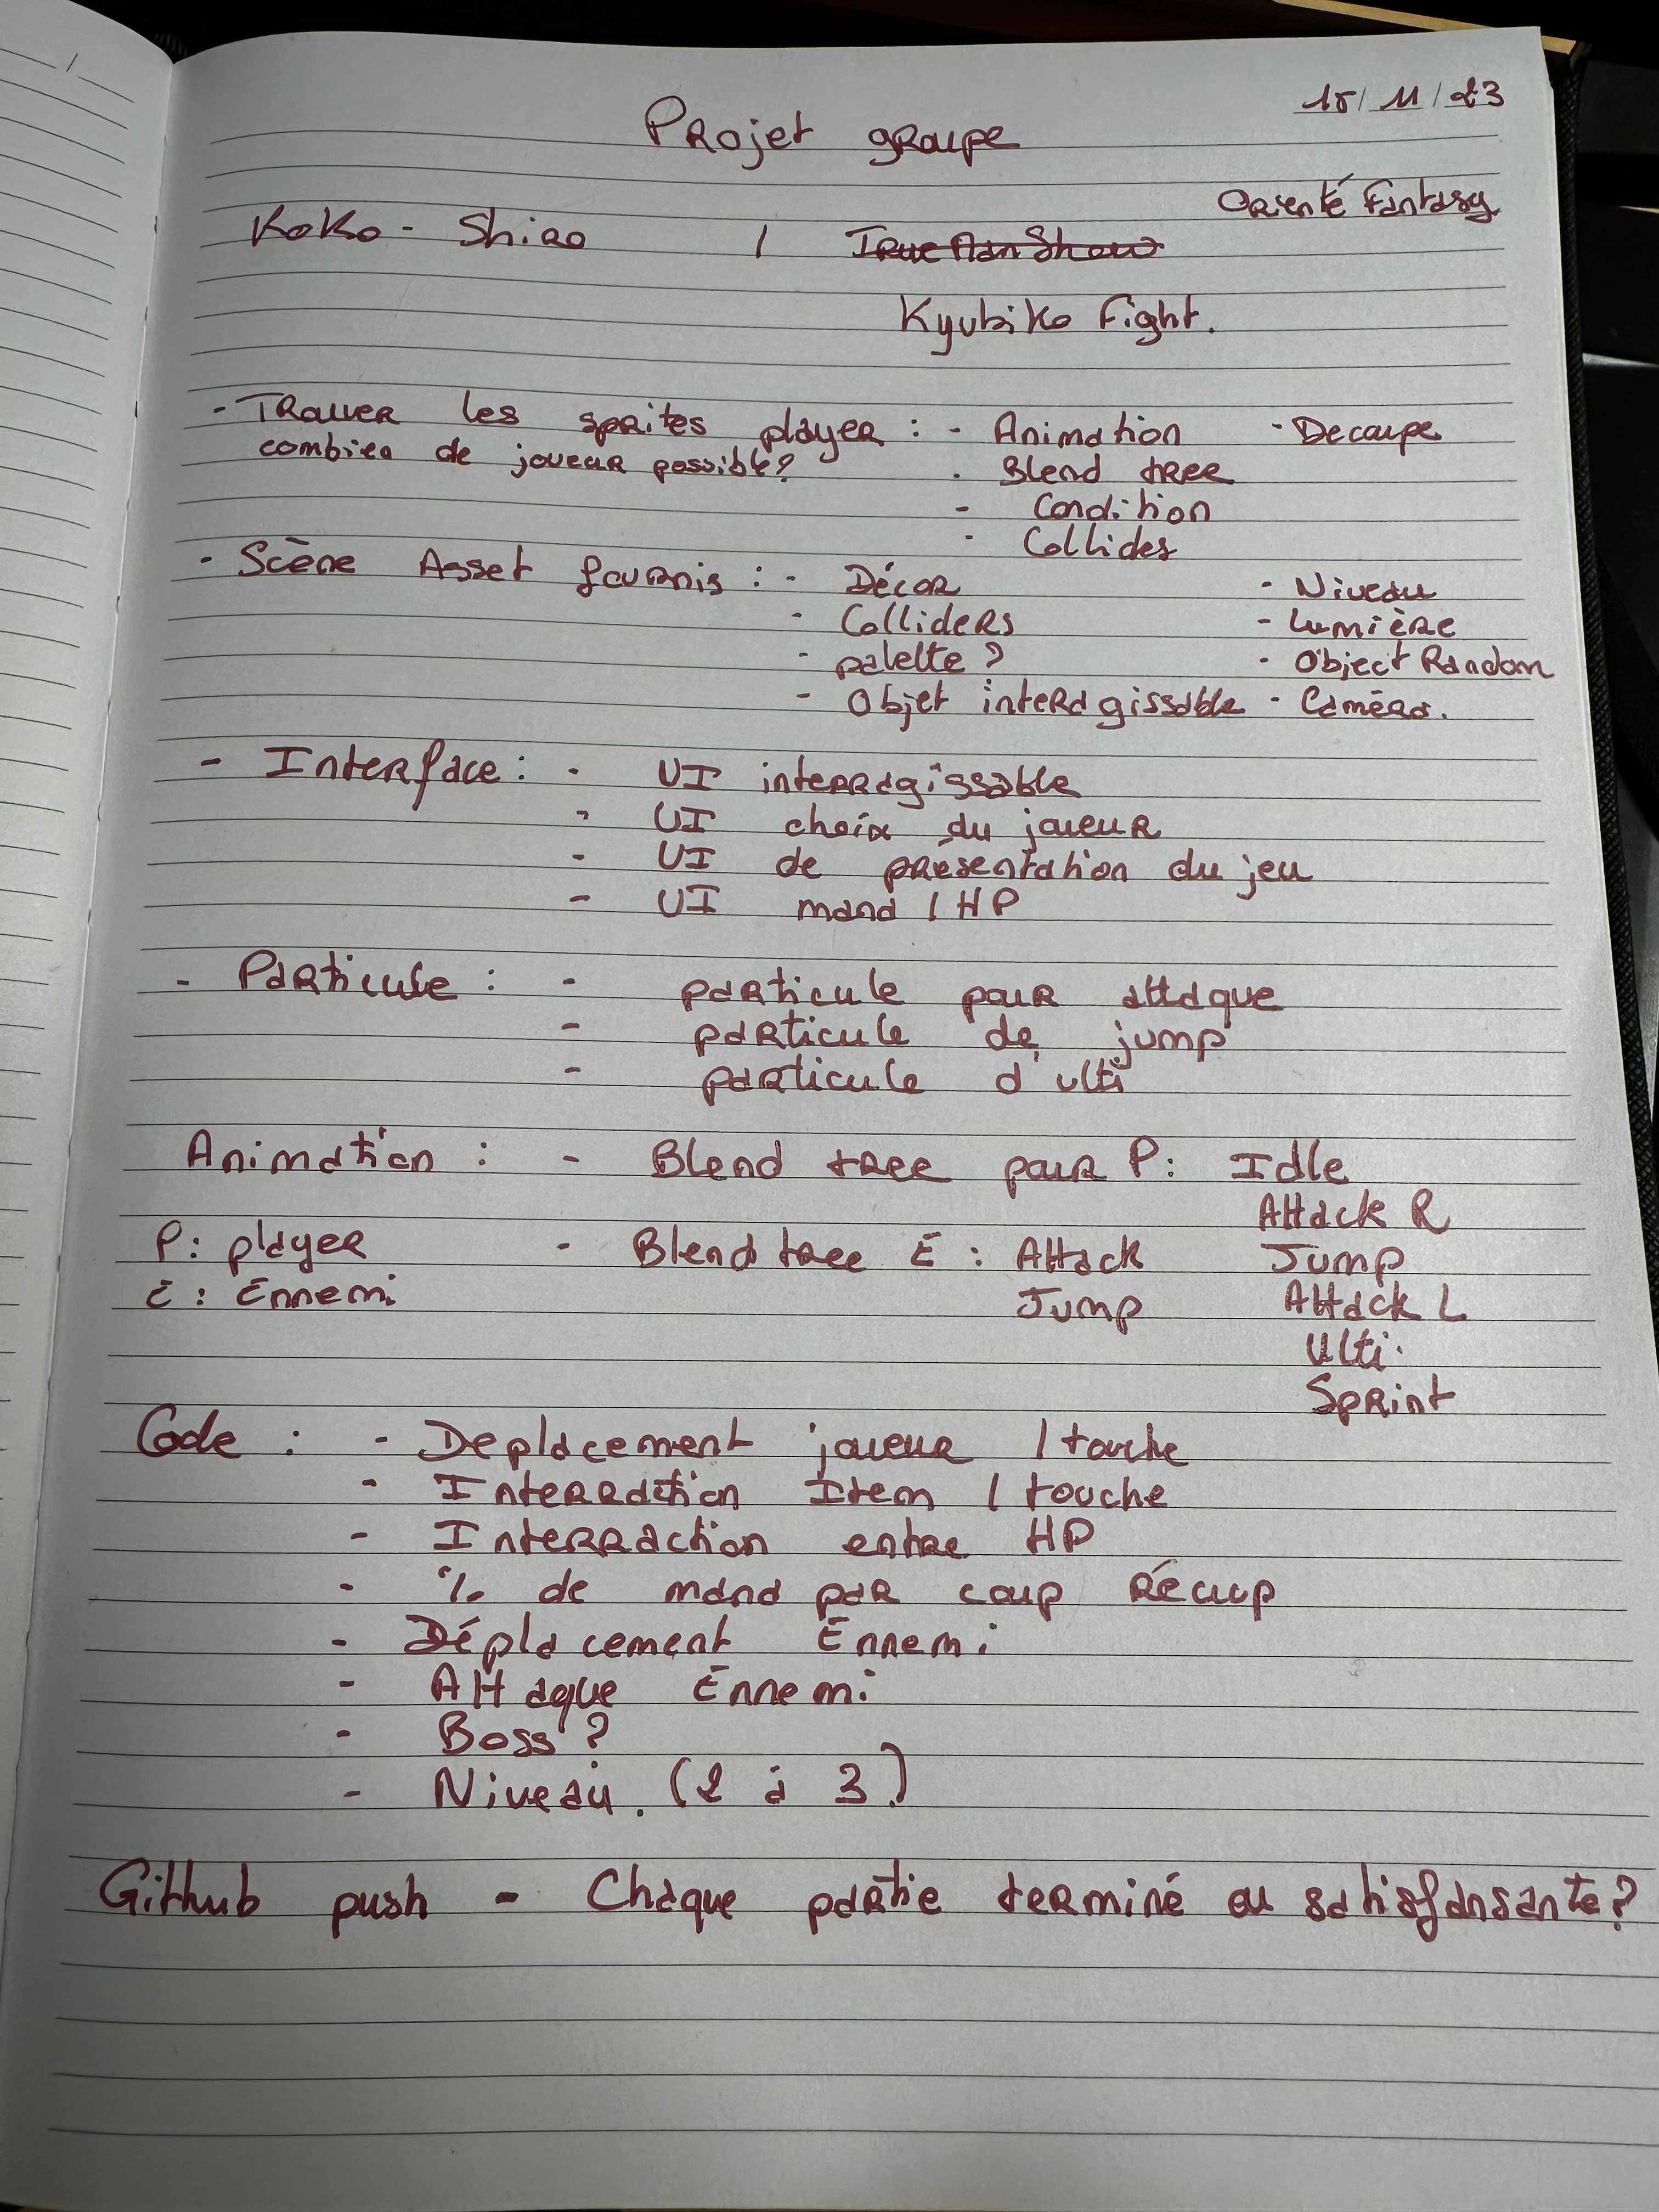 15/11/23
Projet groupe
Orienté Fantasy
Koko - Shiro / True Man Show
Kyubiko Fight.
- Trouver les sprites player : - Animation - Decoupe
combien de joueur possible? - Blend tree
- Condition
- Collides
- Scène Asset fournis : - Décor - Niveau
- Colliders - Lumière
- palette ? - Object Random
- Objet interagissable - Caméra.
- Interface : - UI interragissable
- UI choix du joueur
- UI de présentation du jeu
- UI mana / HP
- Particule : - particule pour attaque
- particule de jump
- particule d'ulti
Animation : - Blend tree pour P : Idle
Attack R
P : player - Blend tree E : Attack Jump
E : Ennemi Jump Attack L
Ulti
Sprint
Code : - Deplacement joueur / touche
- Interration Item / touche
- Interraction entre HP
- % de mana par coup récup
- Déplacement Ennemi
- Attaque Ennemi
- Boss ?
- Niveau. (2 à 3)
Github push - Chaque partie terminé ou satisfansante?